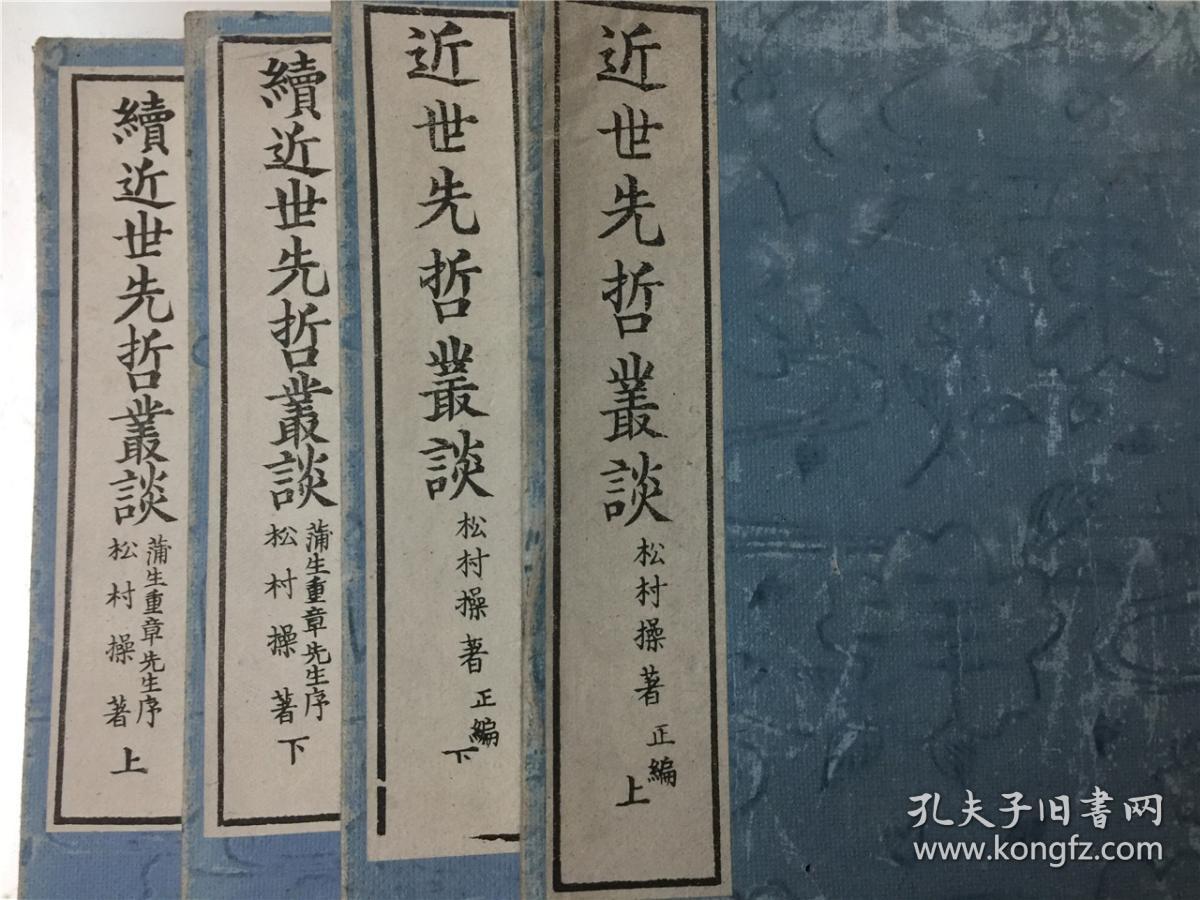 近世先哲叢談
松村操著 正編
上
近世先哲叢談
松村操著 正編
下
續近世先哲叢談
蒲生重章先生序
松村操著
下
續近世先哲叢談
蒲生重章先生序
松村操著
上
孔夫子旧书网
www.kongfz.com